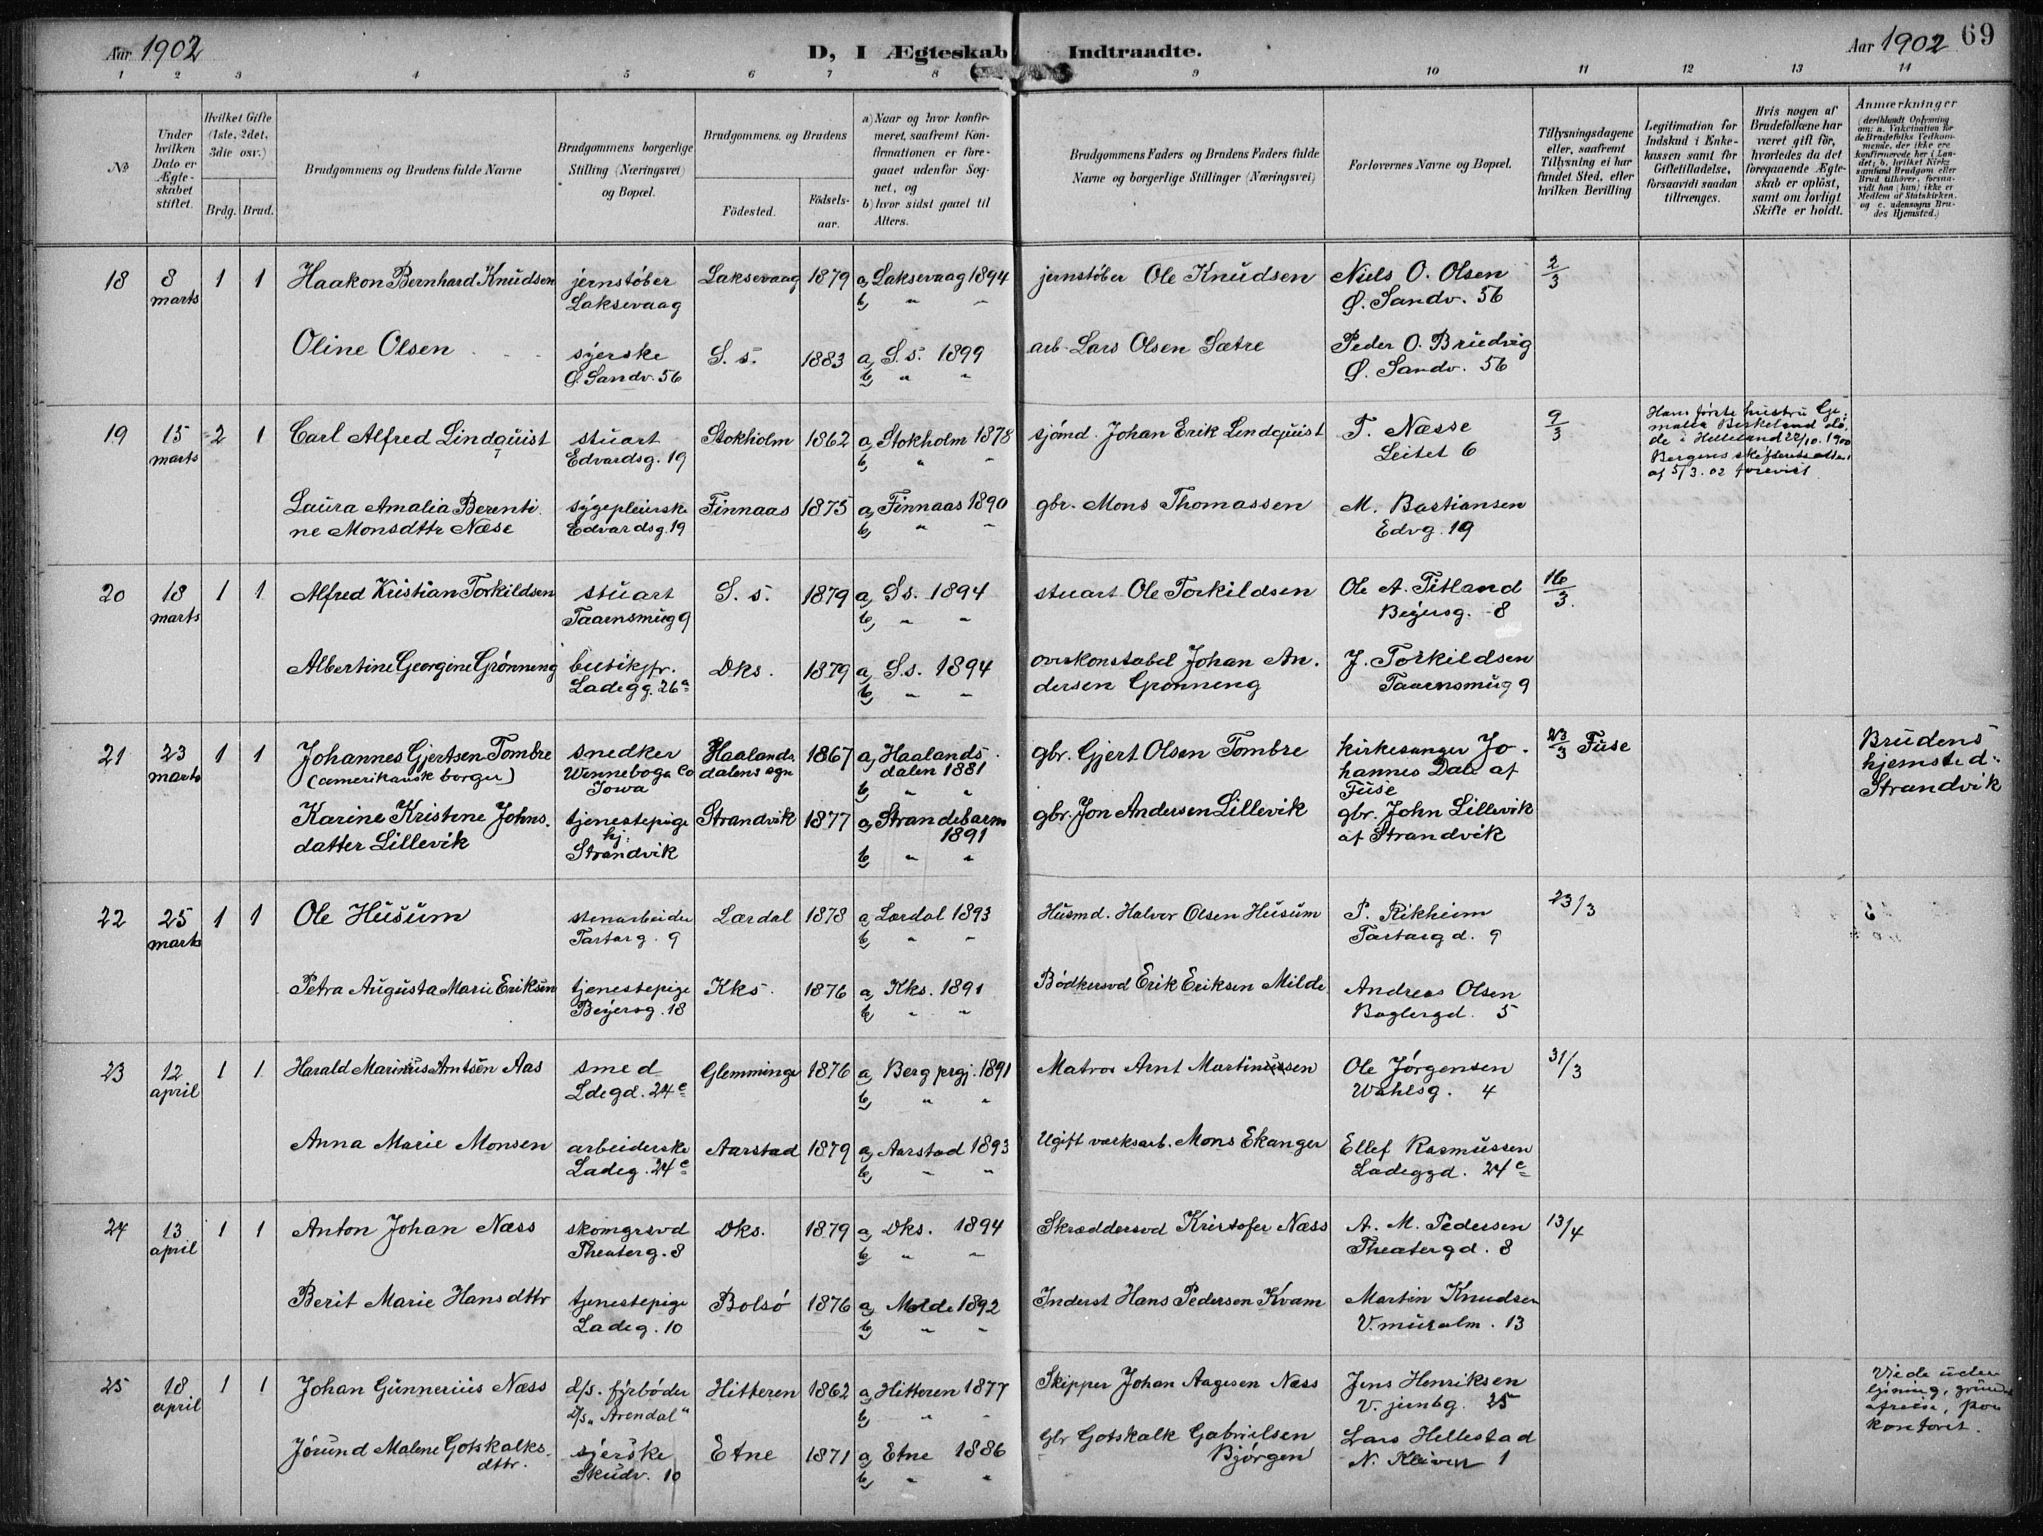 Aar 1902
D, I Ægteskab Indtraadte.
Aar 1902 69
1 2 3 4 5 6 7 8 9 10 11 12 13 14
No
Under hvilken Dato er Ægteskabet stiftet.
Hvilket Gifte (1ste, 2det, 3die osv.)
Brdg. Brud.
Brudgommens og Brudens fulde Navne
Brudgommens borgerlige Stilling (Næringsvei) og Bopæl.
Brudgommens og Brudens
Födested.
Födsels-aar.
a) Naar og hvor konfirmeret, saafremt Konfirmationen er foregaaet udenfor Sognet, og
b) hvor sidst gaaet til Alters.
Brudgommens Faders og Brudens Faders fulde Navne og borgerlige Stillinger (Næringsvei)
Forlovernes Navne og Bopæl.
Tillysningsdagene eller, saafremt Tillysning ei har fundet Sted, efter hvilken Bevilling
Legitimation for Indskud i Enkekassen samt for Giftetilladelse, forsaavidt saadan tiltrænges.
Hvis nogen af Brudefolkene har været gift för, hvorledes da det foregaaende Ægteskab er oplöst, samt om lovligt Skifte er holdt.
Anmærkninger (deriblandt Oplysning om: a. Vakcination for de Brudefolks Vedkommende, der ikke ere konfirmerede her i Landet; b. hvilket Kirkesamfund Brudgom eller Brud tilhörer, forsaavidt han (hun) ikke er Medlem af Statskirken, og c. udensogns Brudes Hjemsted.)
18 8 1 1 Haakon Bernhard Knudsen jernstøber Laksevaag 1879 a, Laksevaag 1894 jernstøber Ole Knudsen Niels O. Olsen 2/3
marts Laksevaag b, " " Ø. Sandv. 56
Oline Olsen syerske S. s. 1883 a, S. s. 1899 arb. Lars Olsen Sætre Peder O. Brudvig
Ø. Sandv. 56 b, " " Ø. Sandv. 56
19 15 2 1 Carl Alfred Lindquist stuart Stokholm 1862 a, Stokholm 1878 sjømd. Johan Erik Lindquist T. Næsse 9/3
marts Edvardsg. 19 b, " " Leitet 6
Hans første hustru Ge-
malia Birkeland dø-
de i Helleland 22/10. 1900
Bergens skifteretsattest
af 5/3. 02 forevist
Laura Amalia Berenti sygepleierske Finnaas 1875 a, Finnaas 1890 gbr. Mons Thomassen M. Bastiansen
ne Monsdttr Næse Edvardsg. 19 b, " " Edvg. 19
20 18 1 1 Alfred Kristian Torkildsen stuart S. s. 1879 a, S. s. 1894 stuart Ole Torkildsen Ole A. Titland 16/3.
marts Taarnsmug 9 b, " " Beyersg. 8
Albertine Georgine Grønneng butikjfr. Dks. 1879 a, S. s. 1894 overkonstabel Johan An- J. Torkildsen
Ladegg. 26a b, " " dersen Grønneng Taarnsmug 9
21 23 1 1 Johannes Gjertsen Tombre snedker Haalands- 1867 a, Haalands- gbr. Gjert Olsen Tombre kirkesanger Jo- 23/3 Fuse Brudens
marts (amerikansk borger) Winneboga Co dalens sgn dalen 1881 hannes Dale af hjemsted:
Iowa b, " " Fuse Strandvik
Karine Kristine Johns- tjenestepige Strandvik 1877 a, Strandebarm gbr. Jon Andersen Lillevik gbr. John Lillevik
datter Lillevik hj: 1891 af Strandvik
Strandvik b, " "
22 25 1 1 Ole Husum stenarbeider Lærdal 1878 a, Lærdal 1893 Husmd. Halvor Olsen Husum P. Rikheim 23/3
marts Tartarg. 9 b, " " Tartargd. 9
Petra Augusta Marie Eriksen tjenestepige Kks. 1876 a, Kks. 1891 Bødkersvd Erik Eriksen Milde Andreas Olsen
Beyersg. 18 b, " " Baglergd. 5
23 12 1 1 Harald Marinius Arntsen Aas smed Glemminge 1876 a, Berg prgj. 1891 Matros Arnt Martinussen Ole Jørgensen 31/3
april Ldegd. 24c b, " " Wahlsg. 4
Anna Marie Monsen arbeiderske Aarstad 1879 a, Aarstad 1893 Ugift værksarb. Mons Ekanger Ellef Rasmussen
Ladeg. 24c b, " " Ladeggd. 24c
24 13 1 1 Anton Johan Næss skomgrsvd Dks. 1879 a, Dks. 1894 Skræddersvd Kristofer Næss A. M. Pedersen 13/4
april Theaterg. 8 b, " " Theatergd. 8
Berit Marie Hansdttr tjenestepige Bolsø 1876 a, Molde 1892 Inderst Hans Pedersen Kvam Martin Knudsen
Ladeg. 10 b, " " V. muralm. 13
25 18 1 1 Johan Gunnerius Næss d/s. fyrbøder Hitteren 1862 a, Hitteren 1877 Skipper Johan Aagesen Næss Jens Henriksen
april D/s "Arendal" b, " " V. jernbg. 25
Jørund Malene Gotskalks- syerske Etne 1871 a, Etne 1886 Gbr Gotskalk Gabrielsen Lars Hellestad
dttr. Skudv. 10 b, " " Bjørgen N. Kleiven 1
kontoret.